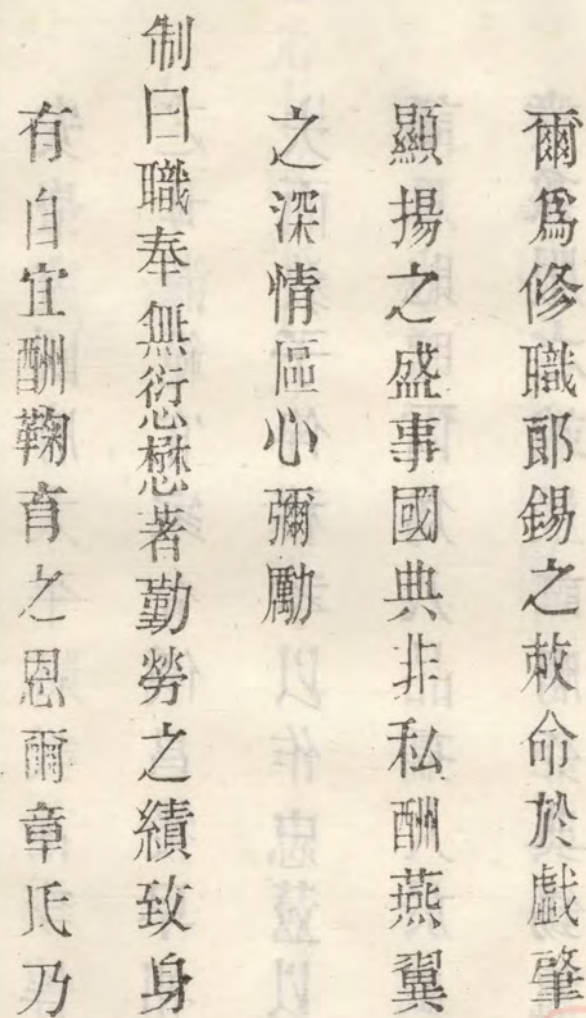 爾爲修職郎錫之敕命於戲肇
顯揚之盛事國典非私酬燕翼
之深情臣心彌勵
制曰職奉無愆懋著勤勞之績致身
有自宜酬鞠育之恩爾章氏乃